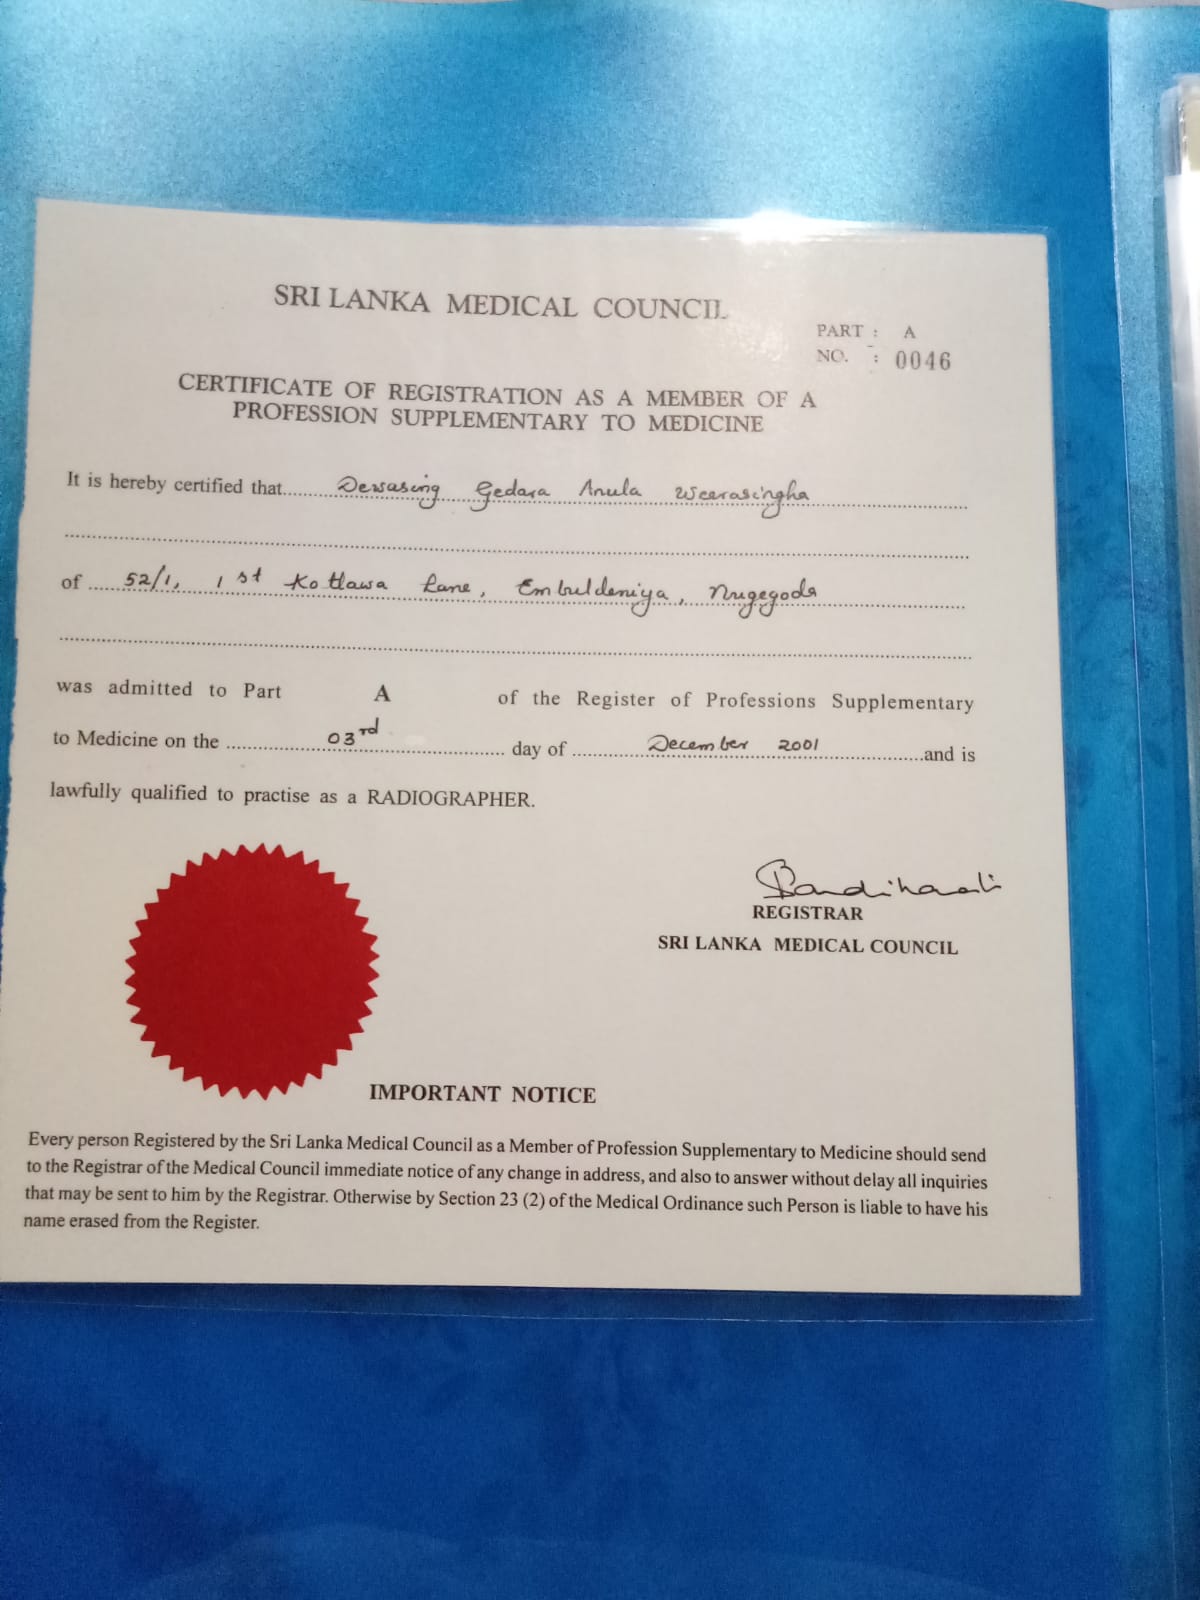 SRI LANKA MEDICAL COUNCIL
PART : A
NO. : 0046
CERTIFICATE OF REGISTRATION AS A MEMBER OF A
PROFESSION SUPPLEMENTARY TO MEDICINE
It is hereby certified that Dewasing Gedara Anula Weerasingha
of 52/1, 1st Kottawa Lane, Embuldeniya, Nugegoda
was admitted to Part A of the Register of Professions Supplementary
to Medicine on the 03rd day of December 2001 and is
lawfully qualified to practise as a RADIOGRAPHER.
REGISTRAR
SRI LANKA MEDICAL COUNCIL
IMPORTANT NOTICE
Every person Registered by the Sri Lanka Medical Council as a Member of Profession Supplementary to Medicine should send
to the Registrar of the Medical Council immediate notice of any change in address, and also to answer without delay all inquiries
that may be sent to him by the Registrar. Otherwise by Section 23 (2) of the Medical Ordinance such Person is liable to have his
name erased from the Register.